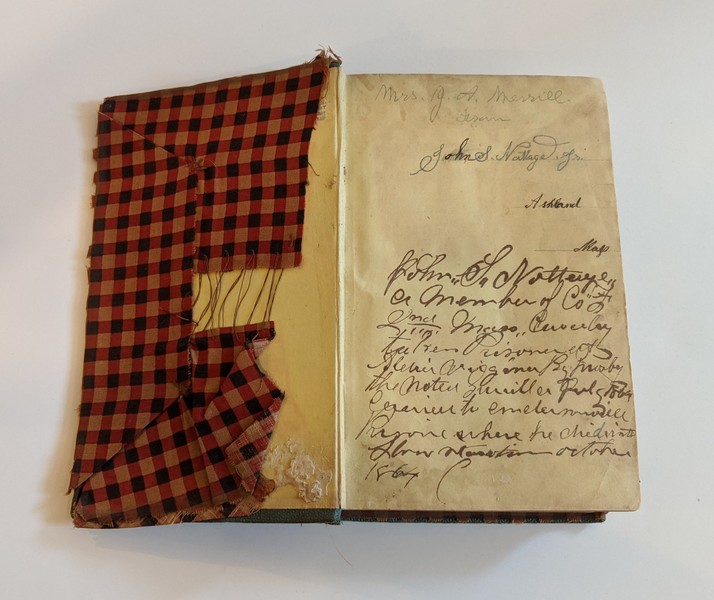 Mrs. J. A. Merrill.
from
John S. Nottage. Jr.
Ashland
Mass
John, S, Nottage,
a Member of Co
2nd Mass, Cavalry
taken Prisoner at
by Mosby
the Noted July 1864
Carried to
Prison where he died
Starvation october
1864